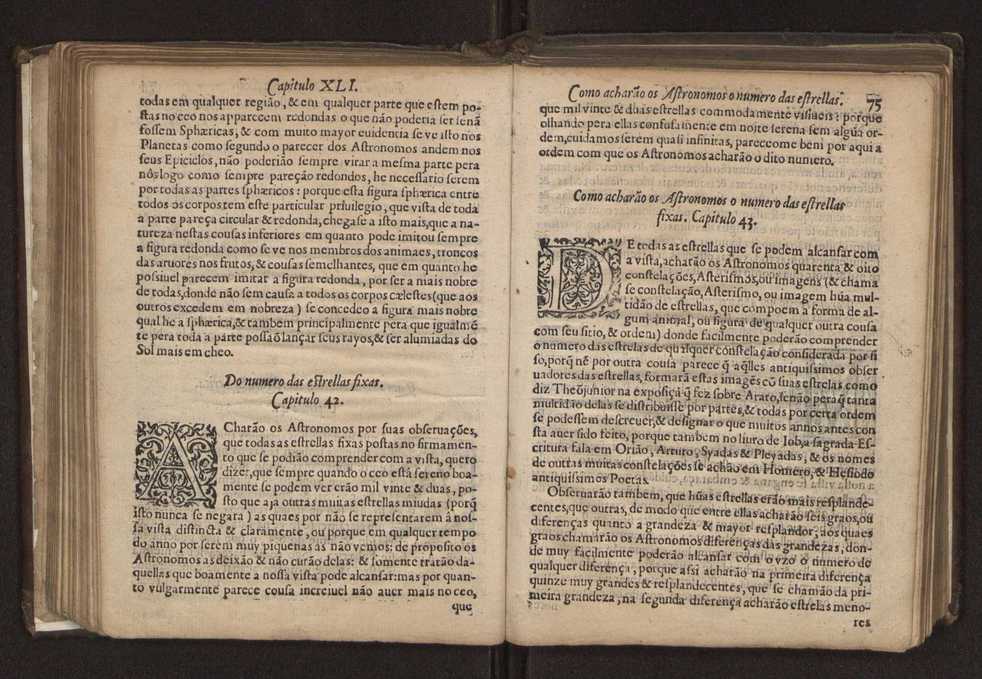 Capitulo XLI.
todas em qualquer região, & em qualquer parte que estem po-
stas no ceo nos apparecem redondas o que não poderia ser senã
fossem Sphæricas, & com muito mayor euidencia se ve isto nos
Planetas como segundo o parecer dos Astronomos andem nos
seus Epiciclos, não poderião sempre virar a mesma parte pera
nós logo como sempre pareção redondos, he necessario serem
por todas as partes sphæricos: porque esta figura sphærica entre
todos os corpos tem este particular priuilegio, que vista de toda
a parte pareça circular & redonda, chegase a isto mais, que a na-
tureza nestas cousas inferiores em quanto pode imitou sempre
a figura redonda como se ve nos membros dos animaes, troncos
das aruores nos frutos, & cousas semelhantes, que em quanto he
possiuel parecem imitar a figura redonda, por ser a mais nobre
de todas, donde não sem causa a todos os corpos cælestes (que aos
outros excedem em nobreza) se concedeo a figura mais nobre
qual he a sphærica, & tambem principalmente pera que igualmẽ
te pera toda a parte possaõ lançar seus rayos, & ser alumiadas do
Sol mais em cheo.
Do numero das estrellas fixas.
Capitulo 42.
ACharão os Astronomos por suas obseruações,
que todas as estrellas fixas postas no firmamen-
to que se podião comprender com a vista, quero
dizer, que sempre quando o ceo està sereno boa-
mente se podem ver erão mil vinte & duas, po-
sto que aja outras muitas estrellas miudas (porq̃
isto nunca se negara) as quaes por não se representarem â nos-
sa vista distincta & claramente, ou porque em qualquer tempo
do anno por serem muy piquenas as não vemos: de proposito os
Astronomos as deixão & não curão delas: & somente tratão da-
quellas que boamente a nossa vista pode alcansar: mas por quan-
to vulgarmente parece cousa increiuel não auer mais no ceo,
que
Como acharão os Astronomos o numero das estrellas. 75
que mil vinte & duas estrellas commodamente visiueis: porque
olhando pera ellas confusamente em noite serena sem algũa or-
dem, cuidamos serem quasi infinitas, pareceome beni por aqui a
ordem com que os Astronomos acharão o dito numero.
Como acharão os Astronomos o numero das estrellas
fixas. Capitulo 43.
DE todas as estrellas que se podem alcansar com
a vista, acharão os Astronomos quarenta & oito
constelações, Asterismos, ou imagens (& chama
se constelação, Asterismo, ou imagem hũa mul-
tidão de estrellas, que compoem a forma de al-
gum animal, ou figura de qualquer outra cousa
com seu sitio, & ordem) donde facilmente poderão comprender
o numero das estrelas de qualquer cõstelação considerada por si
so, porq̃ nẽ por outra cousa parece q̃ aq̃lles antiquissimos obser
uadores das estrellas, formarã estas imagẽs cõ suas estrelas como
diz Theõ junior na exposiçã q̃ fez sobre Arato, senão pera q̃ tanta
multidão delas se distribuisse por partes, & todas por certa ordem
se podessem descreuer, & designar o que muitos annos antes con
sta auer sido feito, porque tambem no liuro de Iob, a sagrada Es-
critura fala em Orião, Arturo, Syadas & Pleyadas, & os nomes
de outras muitas constelações se achão em Homero, & Hesiodo
antiquissimos Poetas.
Obseruarão tambem, que hũas estrellas erão mais resplande-
centes, que outras, de modo que entre ellas acharão seis graos, ou
diferenças quanto a grandeza & mayor resplandor, aos quaes
graos chamarão os Astronomos diferenças das grandezas, don-
de muy facilmente poderão alcansar com o vzo o numero de
qualquer diferença, porque assi acharão na primeira diferença
quinze muy grandes & resplandecentes, que se chamão da pri-
meira grandeza, na segunda diferença acharão estrelas meno-
res